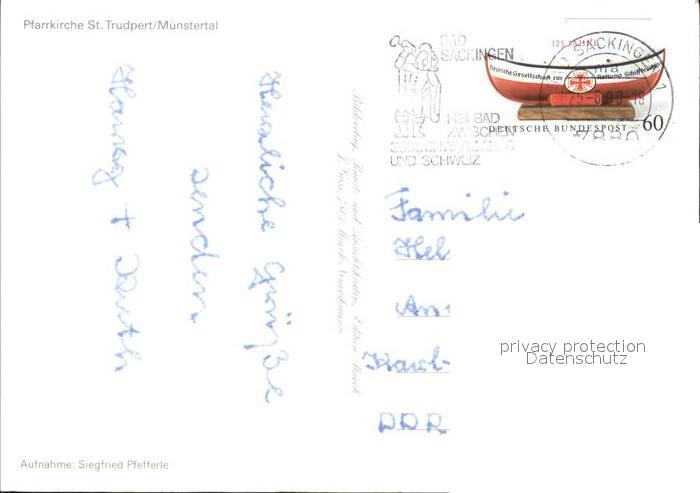 Pfarrkirche St. Trudpert/Münstertal
Herzliche Grüße
senden
Hansy + Ruth
Aufnahme: Siegfried Pfefferle
BAD
SÄCKINGEN
HEILBAD
ZWISCHEN
SÜDSCHWARZWALD
UND SCHWEIZ
125 JAHRE
Deutsche Gesellschaft zur Rettung Schiffbrüchiger
DEUTSCHE BUNDESPOST 60
BAD SÄCKINGEN 1
7880
Familie
Hel
Am
Karl-
DDR
privacy protection
Datenschutz